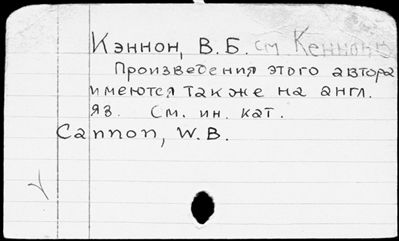 Кэннон, В.Б. см Кеннон
Произведения этого автора
имеются также на англ.
яз. См. ин. кат.
Cannon, W.B.